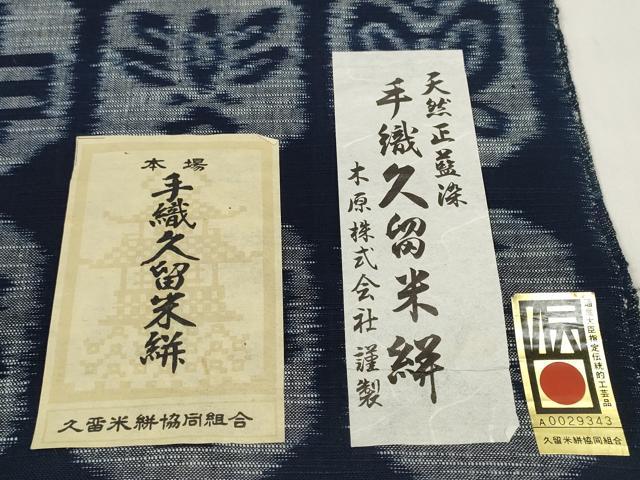 本場
手織久留米絣
久留米絣協同組合
天然正藍染
手織久留米絣
木原株式会社謹製
伝
大臣指定伝統的工芸品
A0029343
久留米絣協同組合